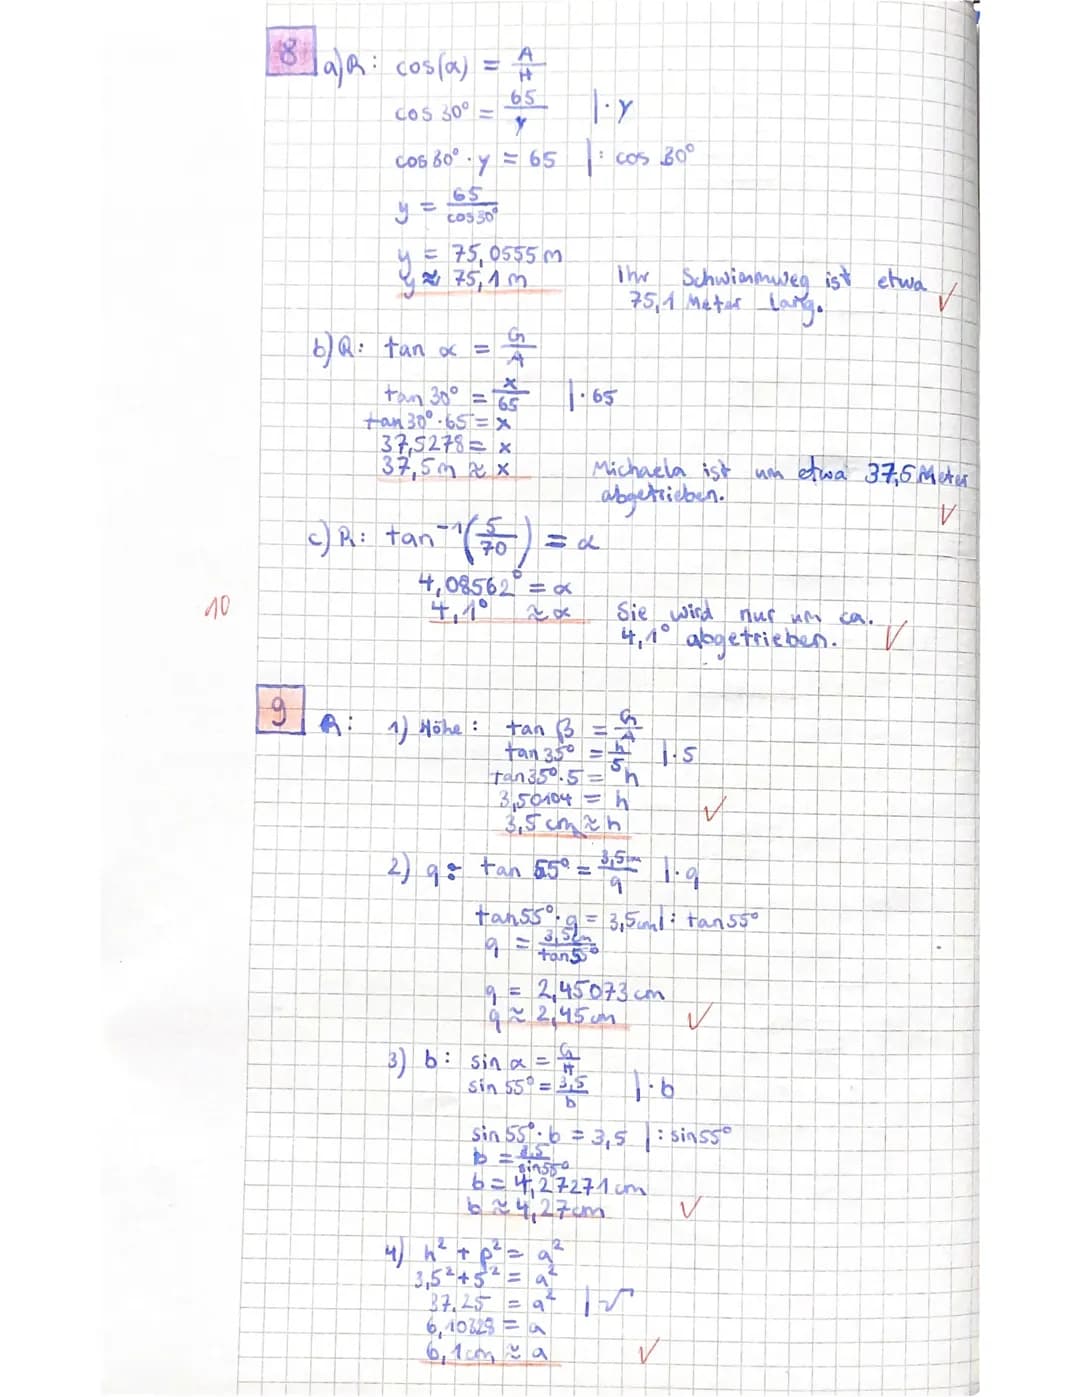 8
a) R: cos(α) = A/H
cos 30° = 65/y |· y
cos 30° · y = 65 |: cos 30°
y = 65/cos 30°
y = 75,0555 m
y ≈ 75,1 m
Ihr Schwimmweg ist etwa
75,1 Meter lang. ✓
b) R: tan α = G/A
tan 30° = x/65 |· 65
tan 30° · 65 = x
37,5278 = x
37,5 m ≈ x
Michaela ist um etwa 37,5 Meter
abgetrieben. ✓
c) R: tan⁻¹(5/70) = α
4,08562° = α
4,1° ≈ α
Sie wird nur um ca.
4,1° abgetrieben. ✓
10
9
R: 1) Höhe: tan β = G/A
tan 35° = h/5 |· 5
tan 35° · 5 = h
3,50104 = h
3,5 cm ≈ h ✓
2) q: tan 55° = 3,5cm/q |· q
tan 55° · q = 3,5cm |: tan 55°
q = 3,5cm/tan 55°
q = 2,45073 cm
q ≈ 2,45 cm ✓
3) b: sin α = G/H
sin 55° = 3,5/b |· b
sin 55° · b = 3,5 |: sin 55°
b = 3,5/sin 55°
b = 4,27271 cm
b ≈ 4,27 cm ✓
4) h² + p² = a²
3,5² + 5² = a²
37,25 = a² |√
6,10328 = a
6,1 cm ≈ a ✓